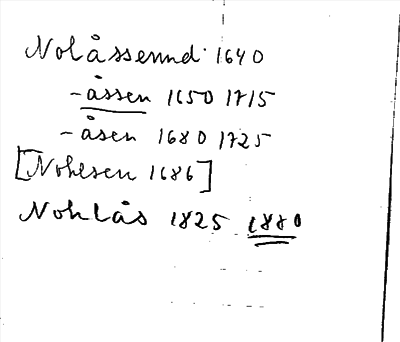 Nolåssennd 1640
-åssen 1650 1715
-åsen 1680 1725
[Nohlsen 1686]
Nohlås 1825 1880